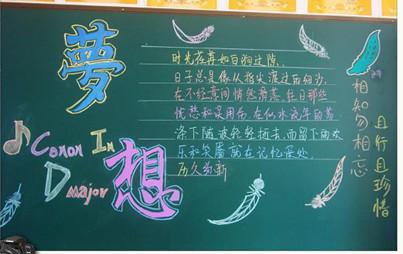 夢想
时光荏苒如白驹过隙
日子总是像从指尖渡过的细沙
在不经意间悄然滑落。往日那些
忧愁和误用伤，在似水流年的荡
涤下随波轻轻逝去，而留下的欢
乐和笑靥就在记忆深处
历久弥新
Canon In
D major
相知勿相忘
且行且珍惜